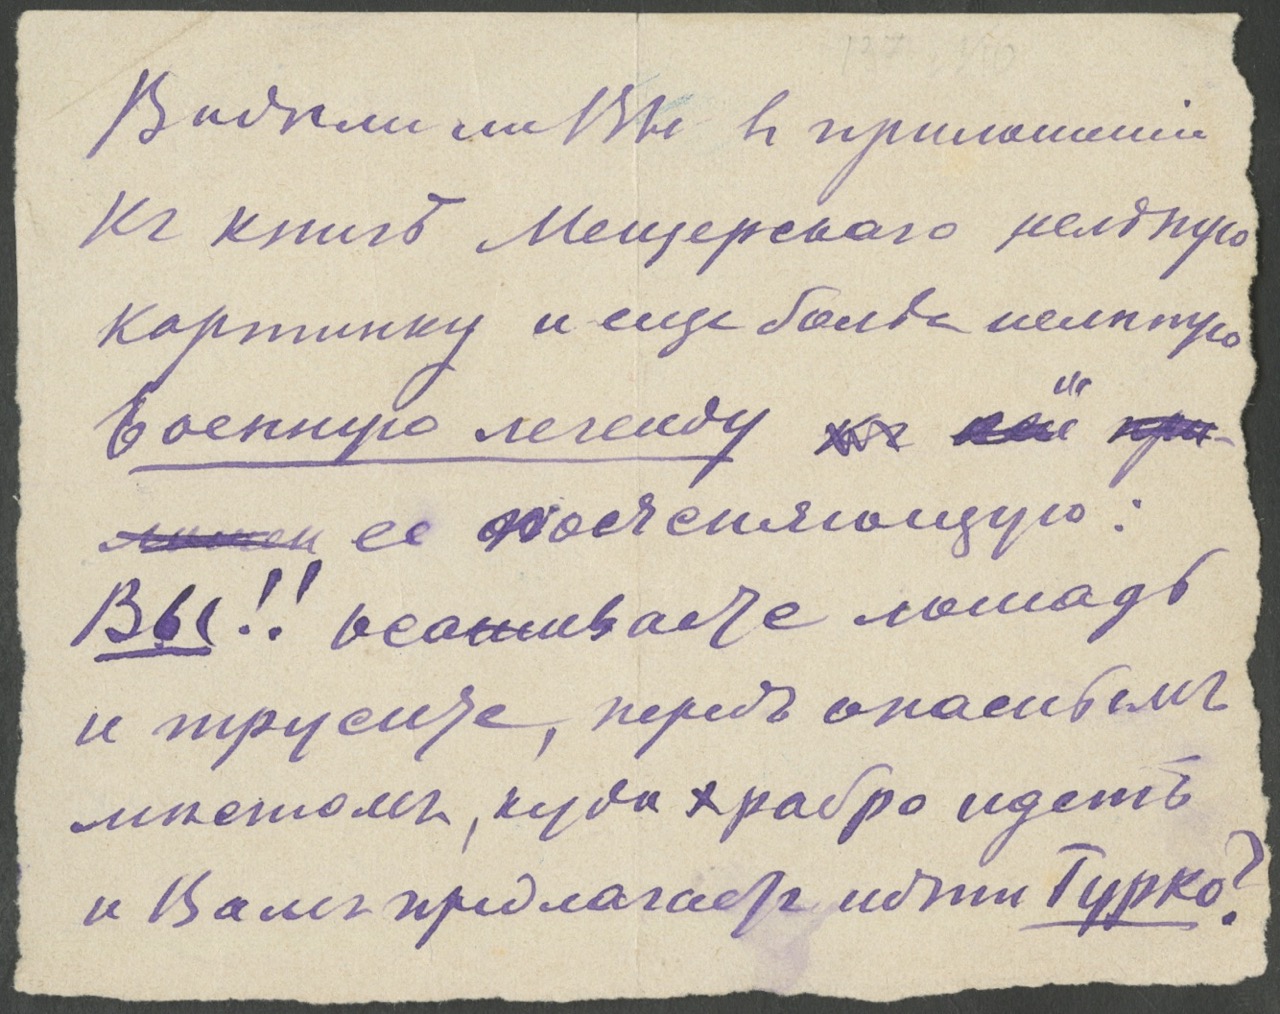 Видѣли ли Вы въ приложеніи
Къ книгѣ Мещерскаго нелѣпую
картинку и еще болѣе нелѣпую
Военную легенду къ ней при-
ложен ее поясняющую:
Вы!! осаживаете лошадь
и трусите, передъ опаснымъ
мѣстомъ, куда храбро идетъ
и Вамъ предлагаетъ идти Гурко?